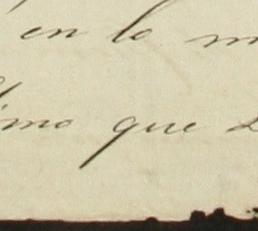 en lo m
imo que